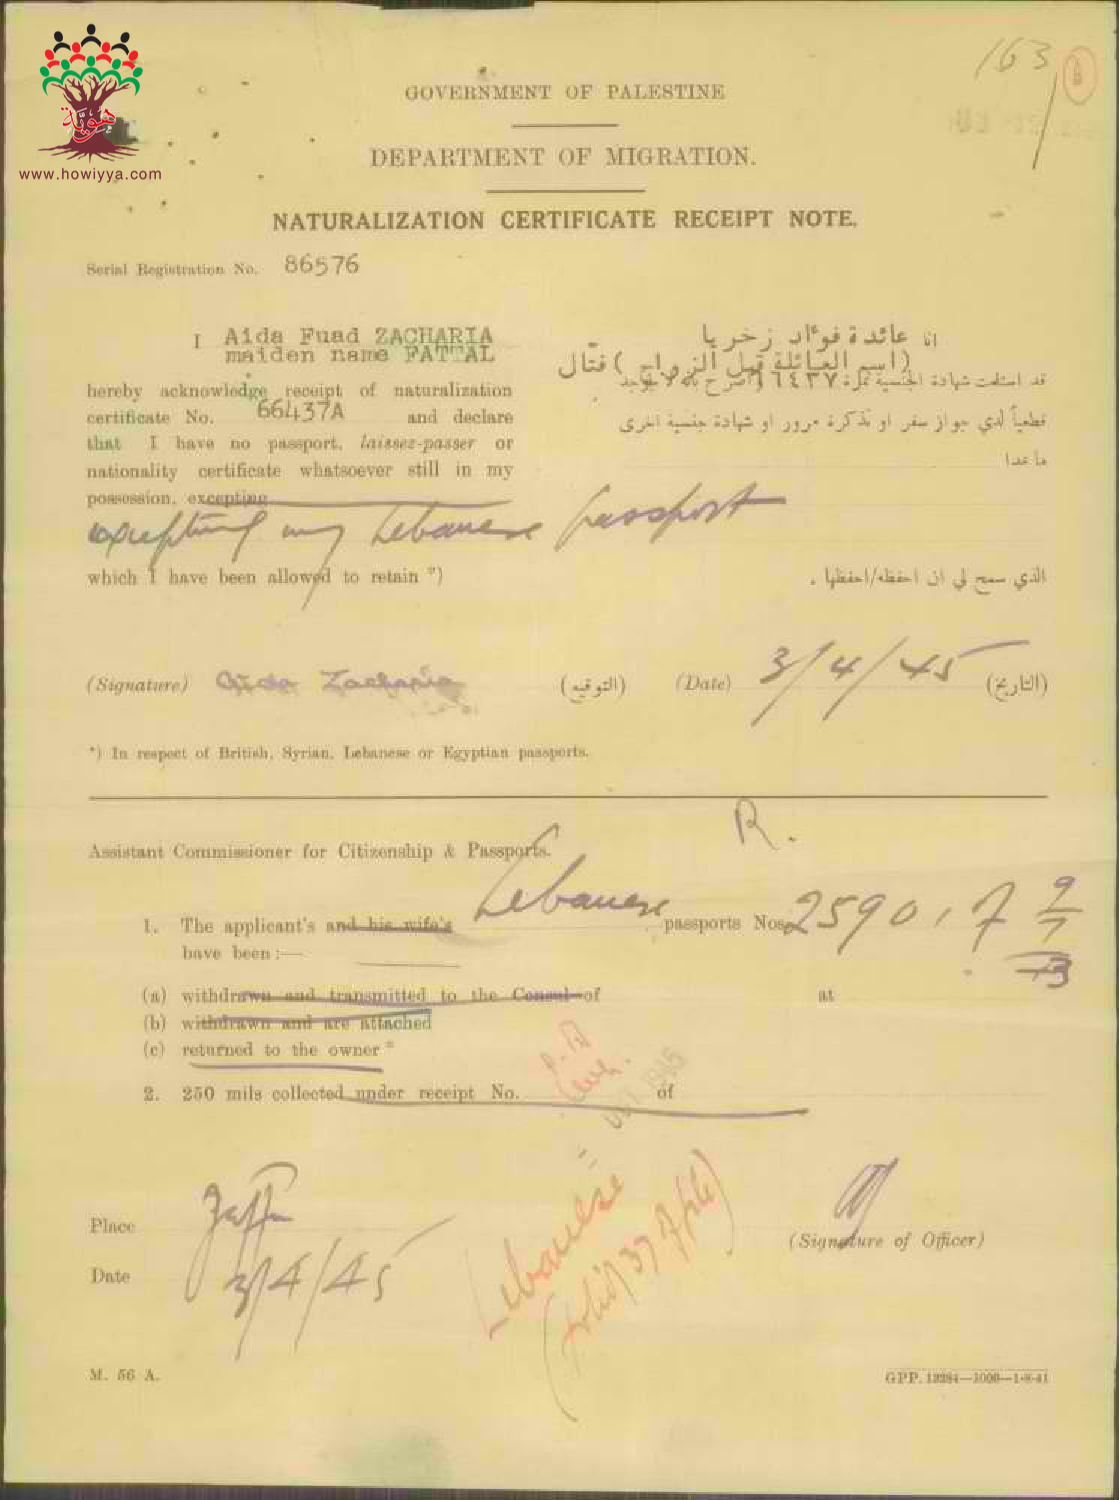 هويّة
www.howiyya.com
163
GOVERNMENT OF PALESTINE
DEPARTMENT OF MIGRATION.
NATURALIZATION CERTIFICATE RECEIPT NOTE.
Serial Registration No. 86576
I Aida Fuad ZACHARIA
maiden name FATTAL
hereby acknowledge receipt of naturalization
certificate No. 66437A and declare
that I have no passport, laissez-passer or
nationality certificate whatsoever still in my
possession, excepting
excepting my Lebanese passport
which I have been allowed to retain *)
انا عائدة فوًاد زخريا
(اسم العائلة قبل الزواج) فتّال
قد استلمت شهادة الجنسية نمرة ٦٦٤٣٧
قطعياً لدي جواز سفر او تذكرة مرور او شهادة جنسية اخرى
ما عدا
الذي سمح لي ان احفظه/احفظها .
(Signature) Aida Zacharia (التوقيع) (Date) 3/4/45 (التاريخ)
*) In respect of British, Syrian, Lebanese or Egyptian passports.
R.
Assistant Commissioner for Citizenship & Passports.
1. The applicant's and his wife's Lebanese passports Nos. 2590
have been :—
(a) withdrawn and transmitted to the Consul of at
(b) withdrawn and are attached
(c) returned to the owner *
2. 250 mils collected under receipt No. of
1945
Lebanese
Place Jaffa
(Signature of Officer)
Date 3/4/45
M. 56 A.
GPP. 13284—1000—1-8-41